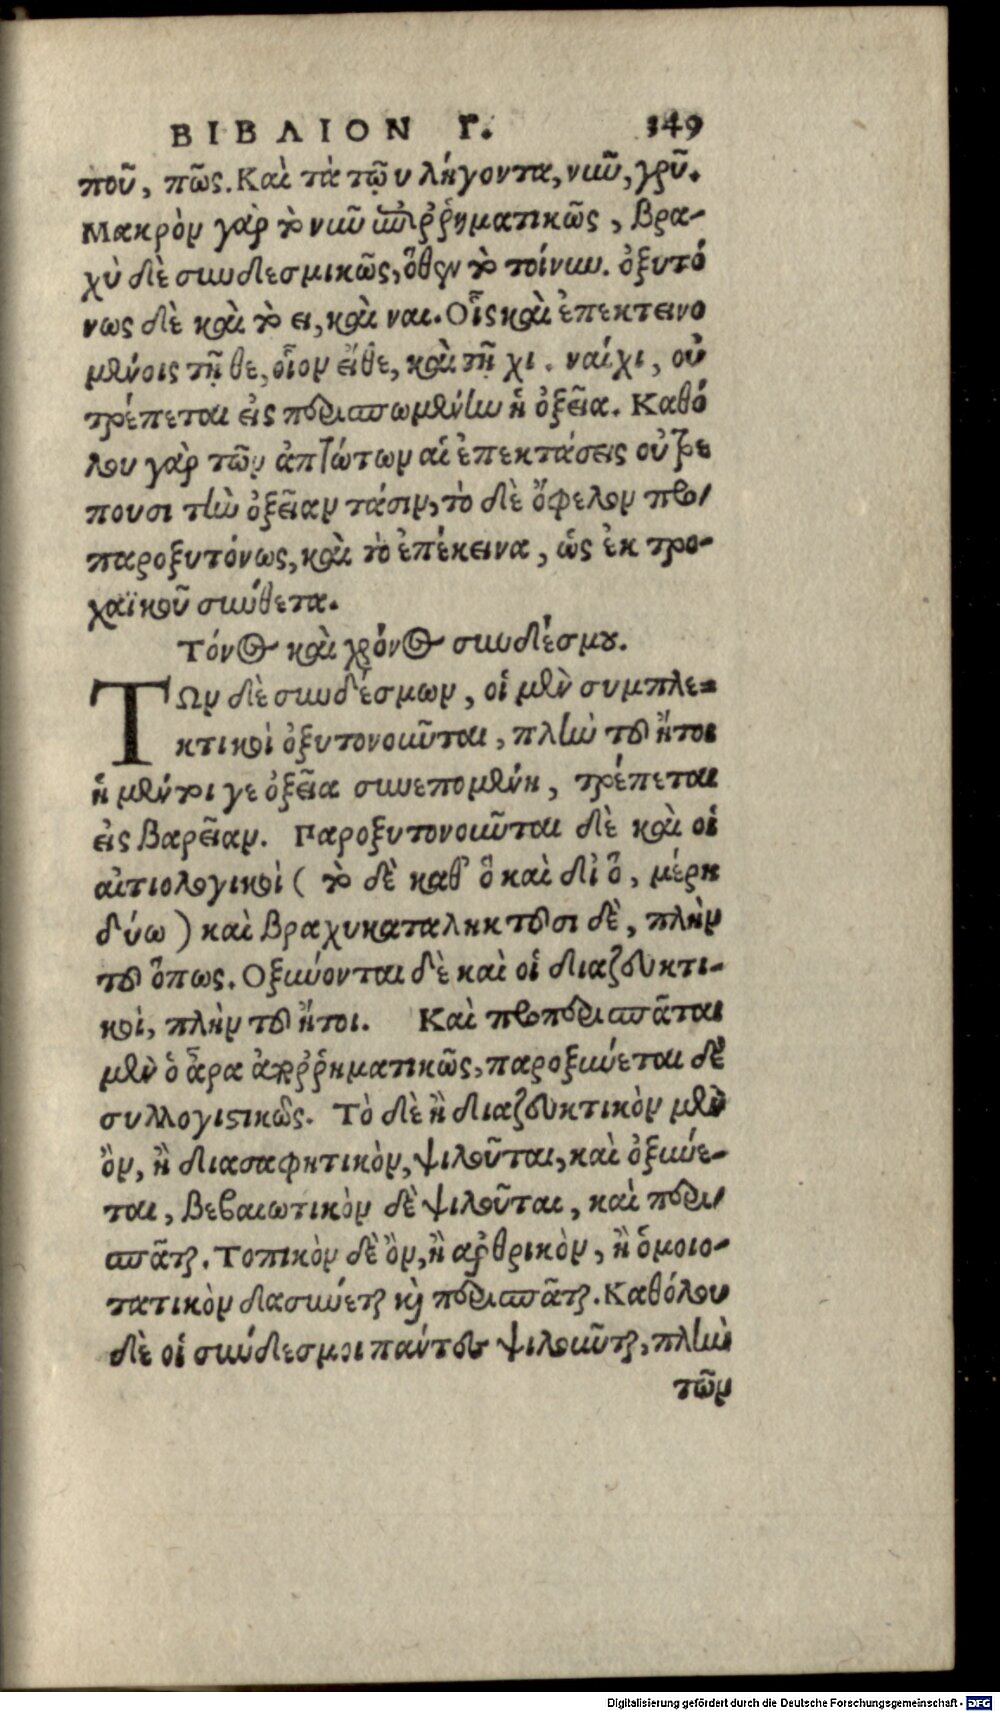 ΒΙΒΛΙΟΝ Γ. 149
ποῦ, πῶς. Καὶ τὰ τῷ υ λήγοντα, νυῦ, γρῦ.
Μακρὸν γάρ τὸ νυῦ ἐπιῤῥηματικῶς, βρα-
χὺ δὲ συνδεσμικῶς, ὅθεν τὸ τοίνυν. ὀξυτό
νως δὲ καὶ τὸ ει, καὶ ναι. Οἷς καὶ ἐπεκτεινο
μένοις τῇ θε, οἷον εἴθε, καὶ τῇ χι. ναίχι, οὐ
τρέπεται εἰς περισπωμένην ἡ ὀξεῖα. Καθό
λου γὰρ τῶν ἀπτώτων αἱ ἐπεκτάσεις οὐ τρε
πουσι τὴν ὀξεῖαν τάσιν, τὸ δὲ ὄφελον προ/
παροξυτόνως, καὶ τὸ ἐπέκεινα, ὡς ἐκ τρο-
χαϊκοῦ σύνθετα.
Τόνος καὶ χρόνος συνδέσμου.
ΤΩν δὲ συνδέσμων, οἱ μὲν συμπλε-
κτικοὶ ὀξυτονοῦνται, πλὴν τοῦ ἤτοι
ἡ μέντοι γε ὀξεῖα συνεπομένη, τρέπεται
εἰς βαρεῖαν. Παροξυτονοῦνται δὲ καὶ οἱ
αἰτιολογικοὶ ( τὸ δὲ καθ' ὃ καὶ δι' ὃ, μέρη
δύω ) καὶ βραχυκαταληκτοῦσι δὲ, πλὴν
τοῦ ὅπως. Οξύνονται δὲ καὶ οἱ διαζευκτι-
κοί, πλὴν τοῦ ἤτοι. Καὶ προπερισπᾶται
μὲν ὁ ἆρα ἀπορρηματικῶς, παροξύνεται δὲ
συλλογιστικῶς. Τὸ δὲ ἢ διαζευκτικὸν μὲν
ὂν, ἢ διασαφητικὸν, ψιλοῦται, καὶ ὀξύνε-
ται, βεβαιωτικὸν δὲ ψιλοῦται, καὶ περι/
σπᾶται. Τοπικὸν δὲ ὂν, ἢ αρθρικὸν, ἢ ὁμοιο-
τατικὸν δασύνεται καὶ περισπᾶται. Καθόλου
δὲ οἱ σύνδεσμοι πάντες ψιλοῦνται, πλὴν
τῶν
Digitalisierung gefördert durch die Deutsche Forschungsgemeinschaft - DFG